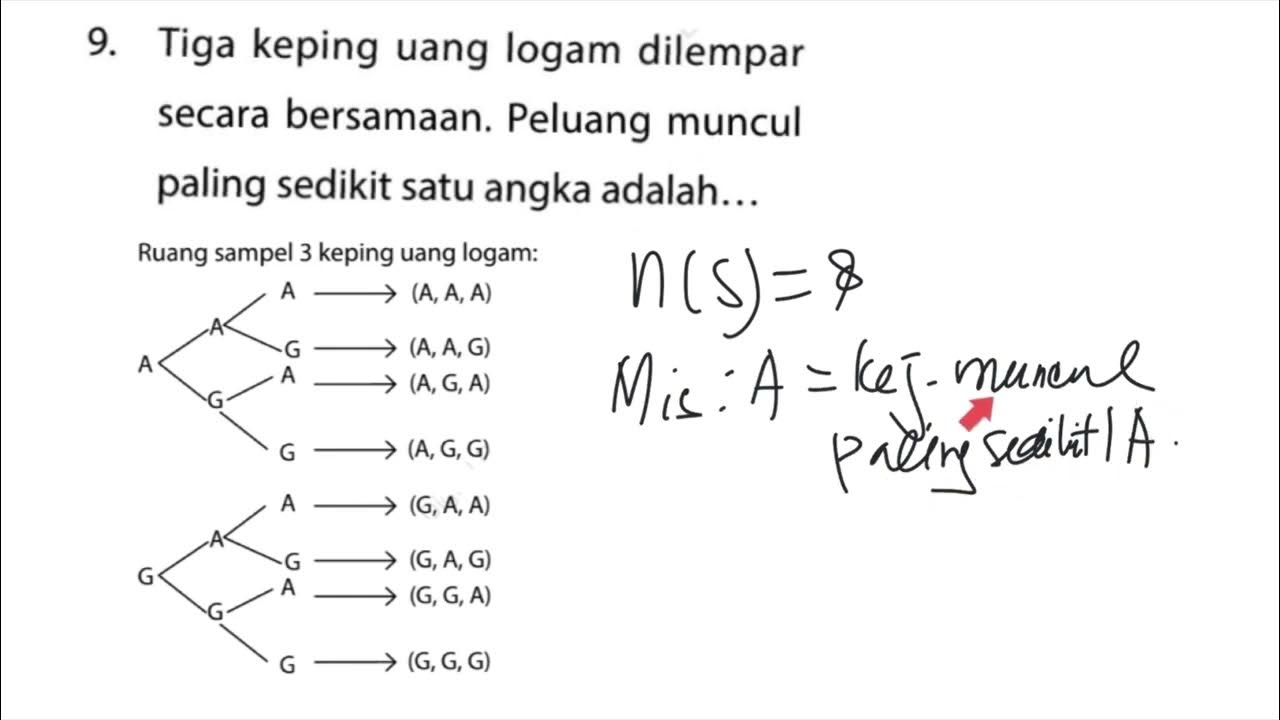 9. Tiga keping uang logam dilempar
secara bersamaan. Peluang muncul
paling sedikit satu angka adalah...
Ruang sampel 3 keping uang logam:
A → (A, A, A)
A
G → (A, A, G)
A
A → (A, G, A)
G
G → (A, G, G)
A → (G, A, A)
A
G → (G, A, G)
G
A → (G, G, A)
G
G → (G, G, G)
n(S) = 8
Mis : A = kej. muncul
paling sedikit 1 A.